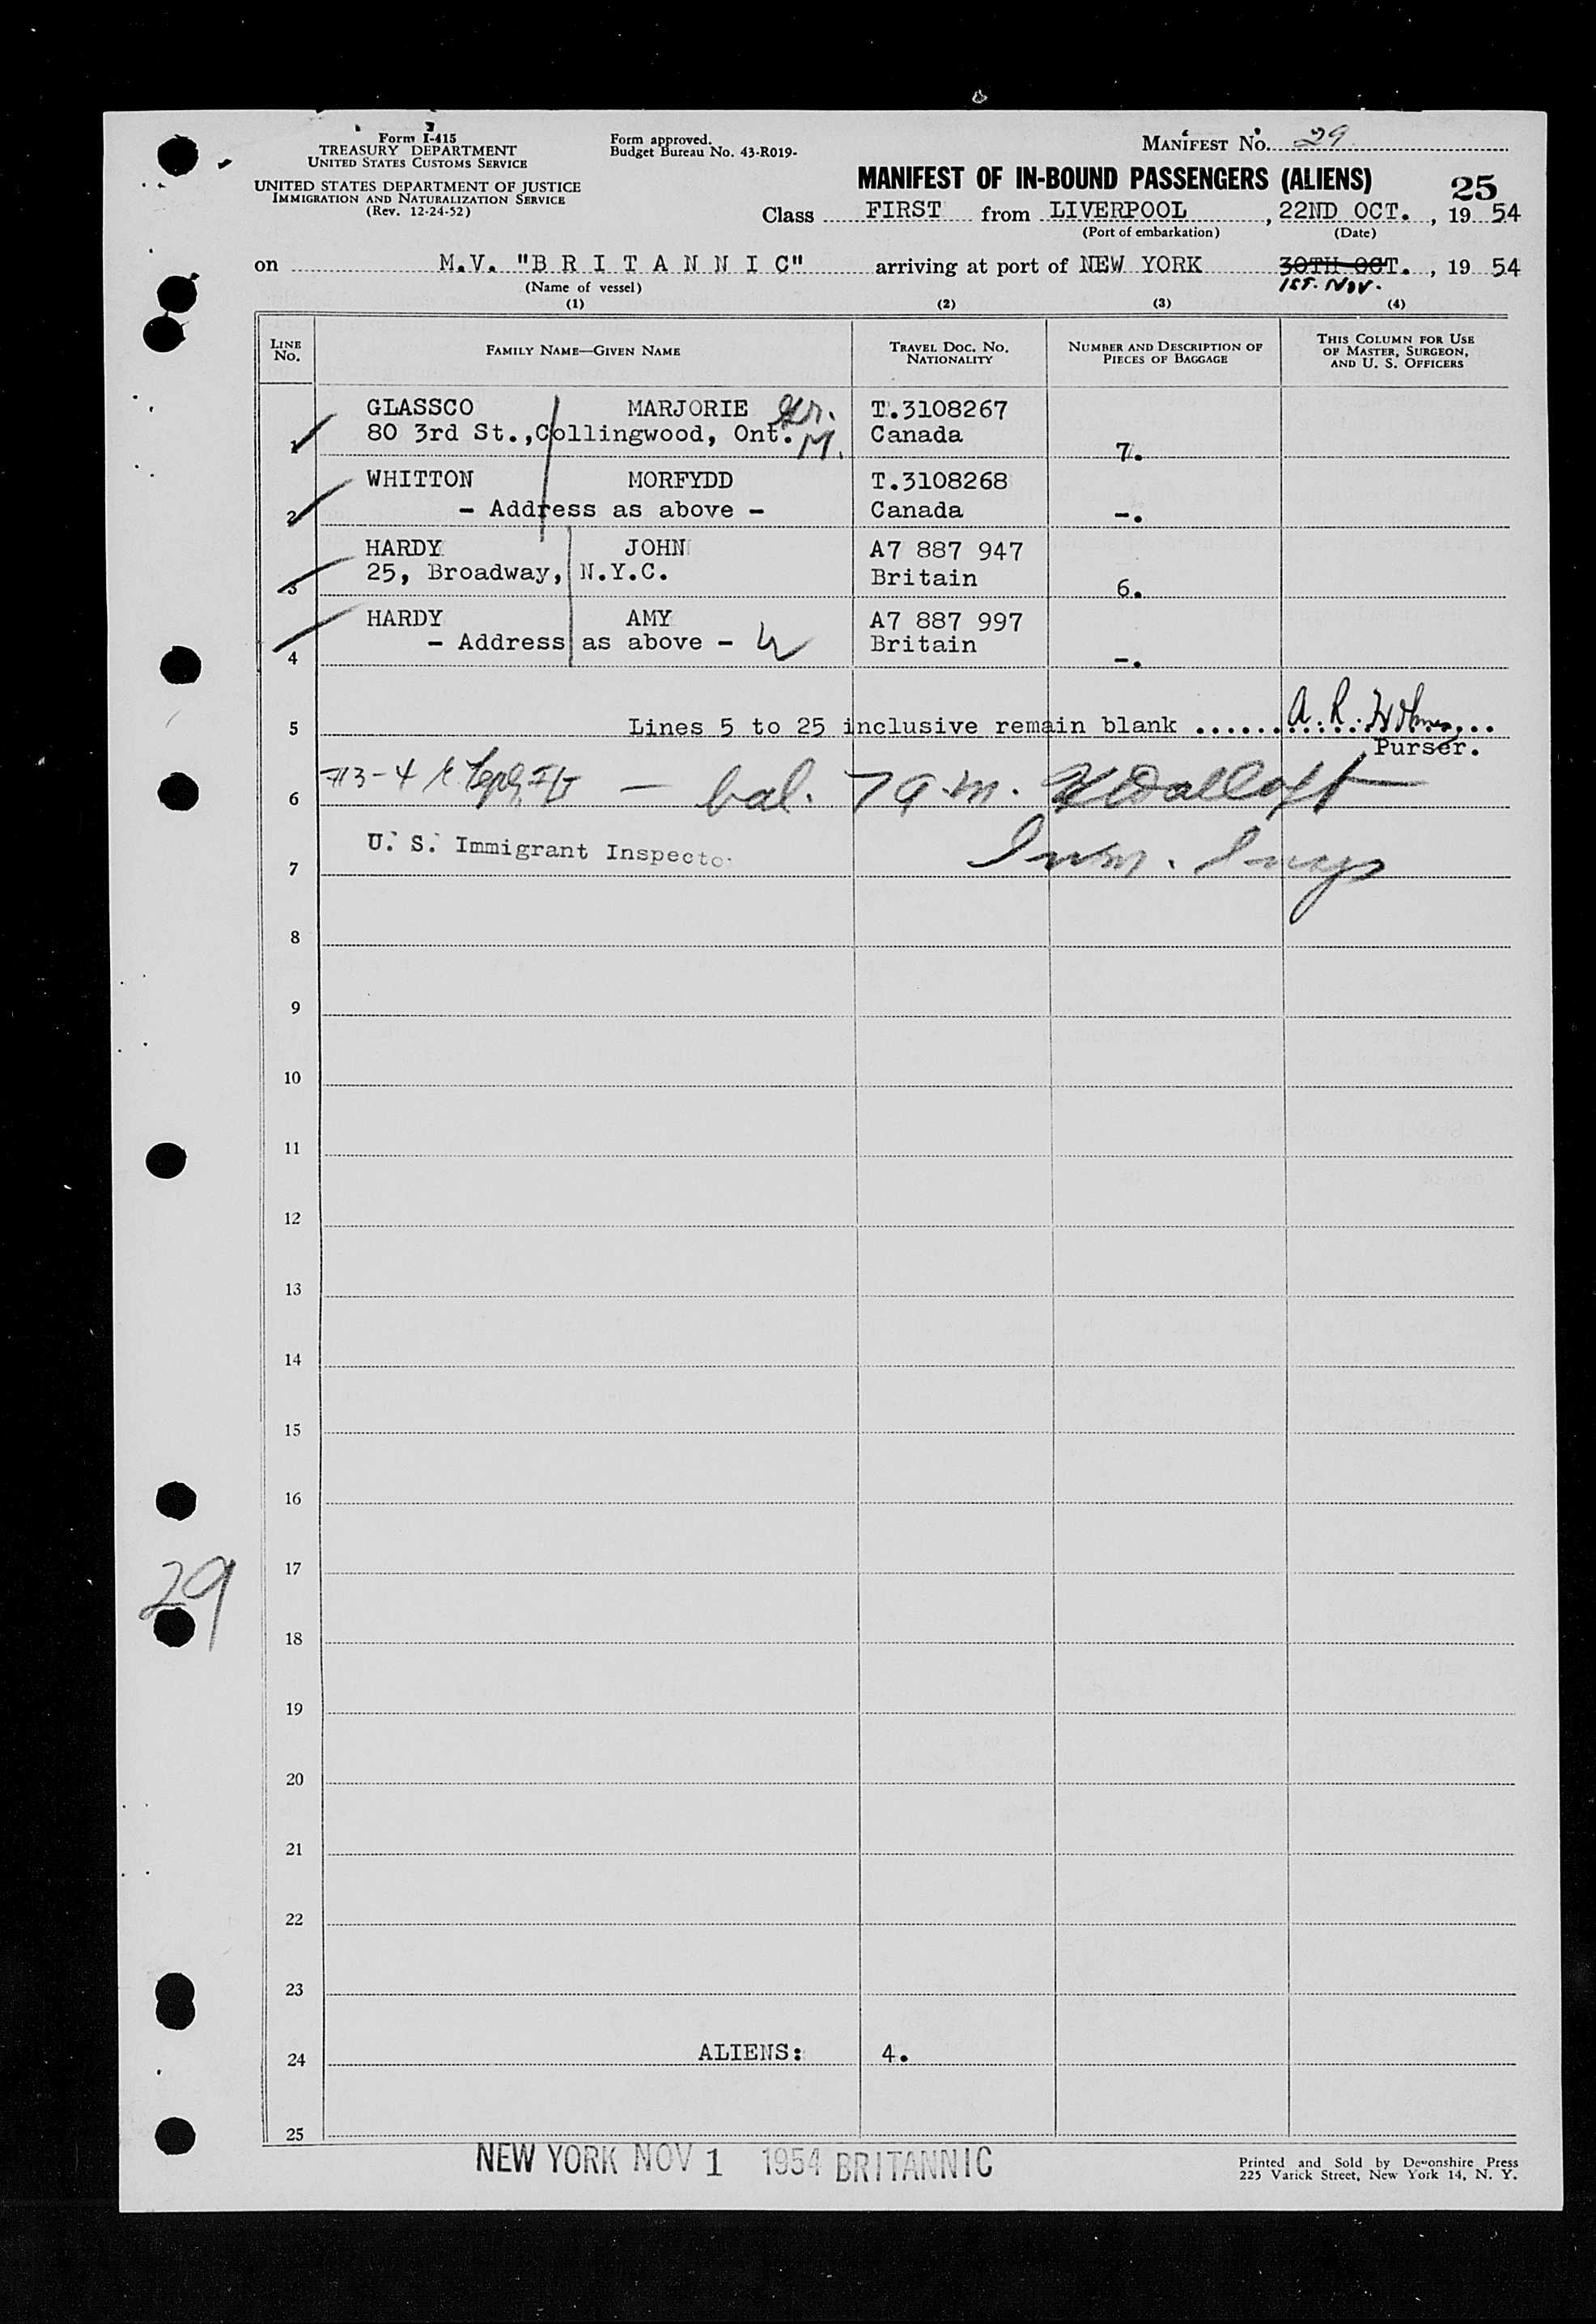 Form I-415
TREASURY DEPARTMENT
UNITED STATES CUSTOMS SERVICE
UNITED STATES DEPARTMENT OF JUSTICE
IMMIGRATION AND NATURALIZATION SERVICE
(Rev. 12-24-52)
Form approved.
Budget Bureau No. 43-R019-
MANIFEST No. 29
MANIFEST OF IN-BOUND PASSENGERS (ALIENS) 25
Class FIRST from LIVERPOOL, 22ND OCT., 19 54
(Port of embarkation) (Date)
on M.V. "B R I T A N N I C" arriving at port of NEW YORK 30TH OCT., 19 54
(Name of vessel) 1ST. NOV.
(1) (2) (3) (4)
LINE No. FAMILY NAME—GIVEN NAME TRAVEL DOC. No. NATIONALITY NUMBER AND DESCRIPTION OF PIECES OF BAGGAGE THIS COLUMN FOR USE OF MASTER, SURGEON, AND U. S. OFFICERS
GLASSCO MARJORIE T.3108267
1 80 3rd St.,Collingwood, Ont. M. Canada 7.
WHITTON MORFYDD T.3108268
2 - Address as above - Canada -.
HARDY JOHN A7 887 947
3 25, Broadway, N.Y.C. Britain 6.
HARDY AMY A7 887 997
4 - Address as above - Britain -.
5 Lines 5 to 25 inclusive remain blank ...... A. R.
Purser.
6 #3-4 — bal. 7 a.m.
7 U. S. Immigrant Inspector Imm. Insp
8
9
10
11
12
13
14
15
16
29
17
18
19
20
21
22
23
24 ALIENS: 4.
25
NEW YORK NOV 1 1954 BRITANNIC
Printed and Sold by Devonshire Press
225 Varick Street, New York 14, N. Y.